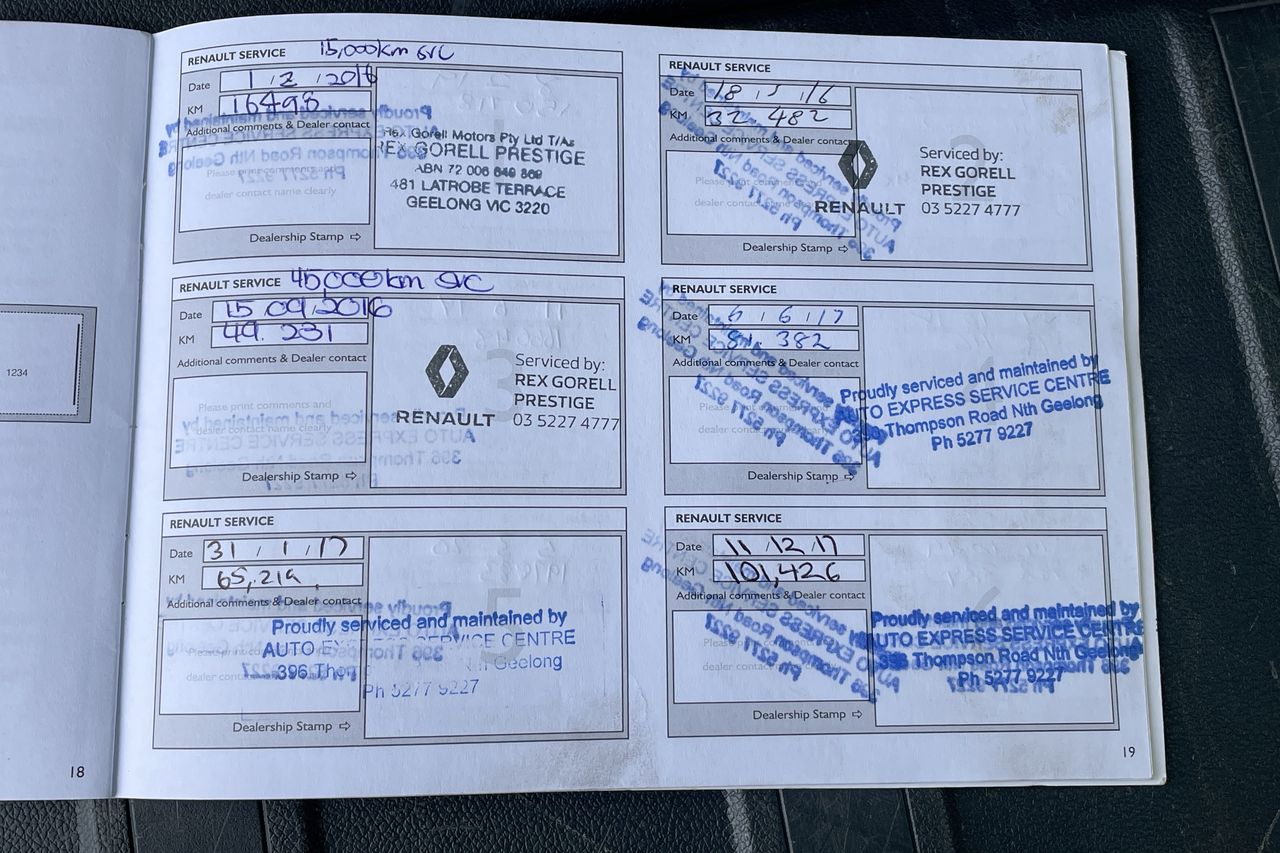 RENAULT SERVICE 15,000km SVC
Date 1 / 2 / 2016
KM 16498
Additional comments & Dealer contact
Please print comments and
dealer contact name clearly
Rex Gorell Motors Pty Ltd T/As
REX GORELL PRESTIGE
ABN 72 006 649 869
481 LATROBE TERRACE
GEELONG VIC 3220
Dealership Stamp ⇨
RENAULT SERVICE
Date 18 / 5 / 16
KM 32 482
Additional comments & Dealer contact
Please print comments
dealer contact
RENAULT
Serviced by:
REX GORELL
PRESTIGE
03 5227 4777
Dealership Stamp ⇨
RENAULT SERVICE 45,000km SVC
Date 15 / 09 / 2016
KM 49.231
Additional comments & Dealer contact
Please print comments and
dealer contact name clearly
3
RENAULT
Serviced by:
REX GORELL
PRESTIGE
03 5227 4777
Dealership Stamp ⇨
RENAULT SERVICE
Date / 6 / 17
KM 81. 382
Additional comments & Dealer contact
Please print
dealer contact
Proudly serviced and maintained by
AUTO EXPRESS SERVICE CENTRE
396 Thompson Road Nth Geelong
Ph 5277 9227
Dealership Stamp ⇨
RENAULT SERVICE
Date 31 / 1 / 17
KM 65,219
Additional comments & Dealer contact
Please print
dealer contact
5
Proudly serviced and maintained by
AUTO EXPRESS SERVICE CENTRE
396 Thompson Nth Geelong
Ph 5277 9227
Dealership Stamp ⇨
RENAULT SERVICE
Date 11 / 12 / 17
KM 101,426
Additional comments & Dealer contact
Please print
dealer contact
Proudly serviced and maintained by
AUTO EXPRESS SERVICE CENTRE
396 Thompson Road Nth Geelong
Ph 5277 9227
Dealership Stamp ⇨
1234
18
19